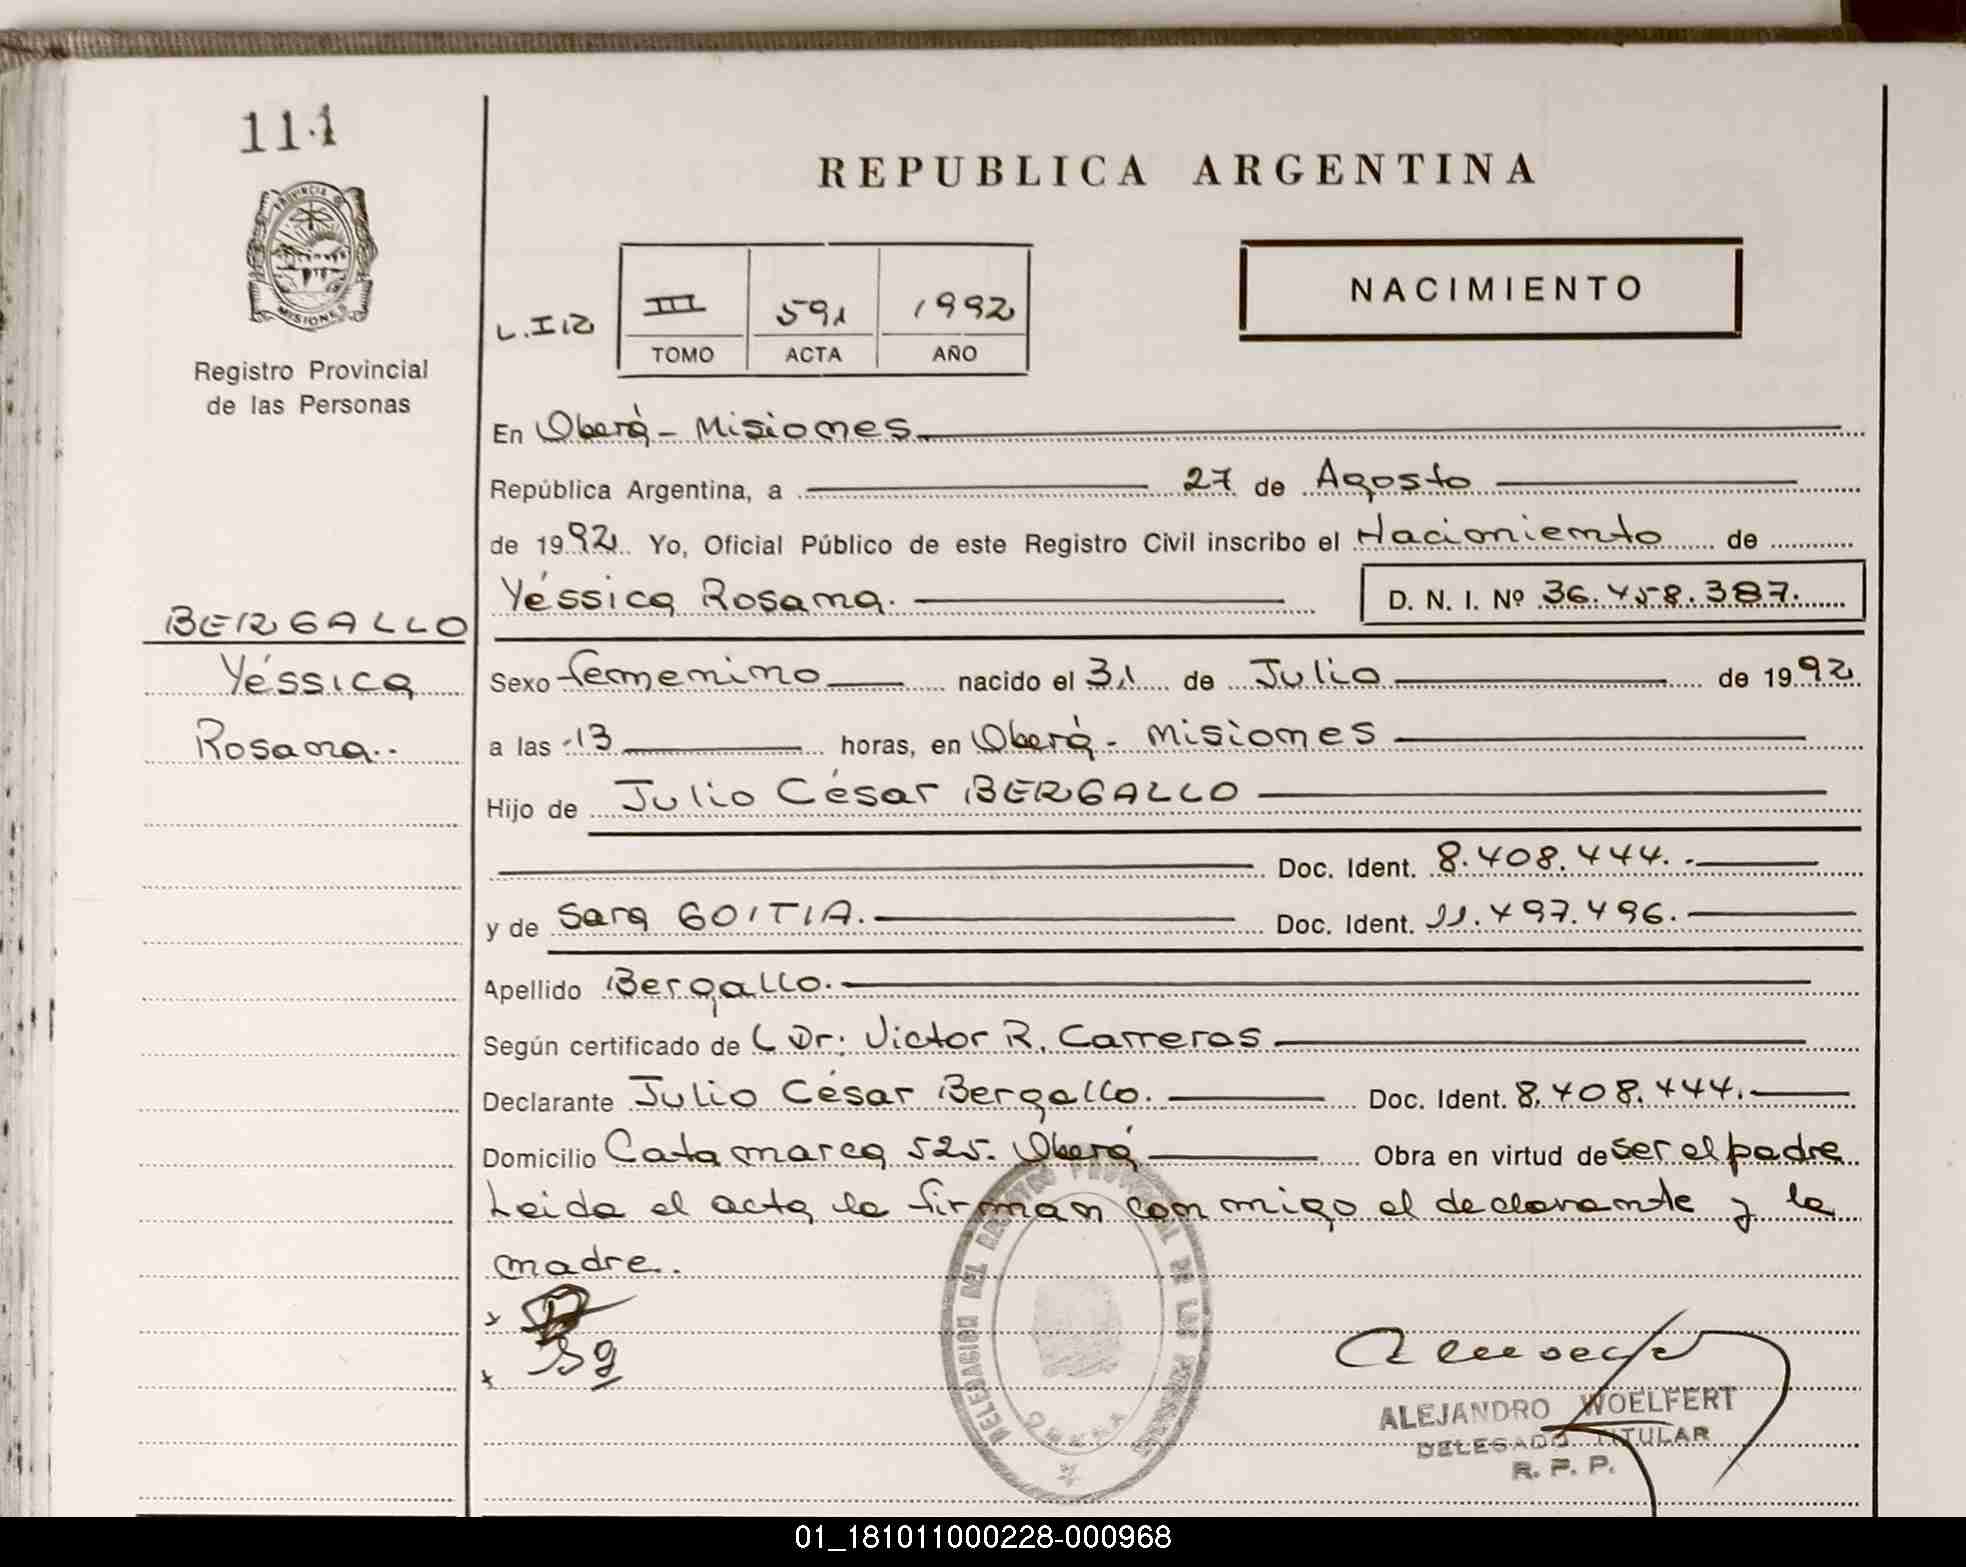 111
PROVINCIA DE
MISIONES
Registro Provincial
de las Personas
REPUBLICA ARGENTINA
NACIMIENTO
III 591 1992
TOMO ACTA AÑO
En Oberá - Misiones
República Argentina, a 27 de Agosto
de 1992. Yo, Oficial Público de este Registro Civil inscribo el Nacimiento de
Yéssica Rosana. D. N. I. Nº 36.458.387.
BERGALLO
Yéssica
Rosana.
Sexo femenino nacido el 31 de Julio de 1992
a las 13 horas, en Oberá - Misiones
Hijo de Julio César BERGALLO
Doc. Ident. 8.408.444.
y de Sara GOITIA. Doc. Ident. 11.497.496.
Apellido Bergallo.
Según certificado de Dr: Victor R. Carreras
Declarante Julio César Bergallo. Doc. Ident. 8.408.444.
Domicilio Catamarca 525. Oberá Obra en virtud de ser el padre
Leida el acta la firman conmigo el declarante y la
madre.
DELEGACION DEL REGISTRO PROVINCIAL DE LAS PERSONAS
ALEJANDRO WOELFERT
DELEGADO TITULAR
R. P. P.
01_181011000228-000968